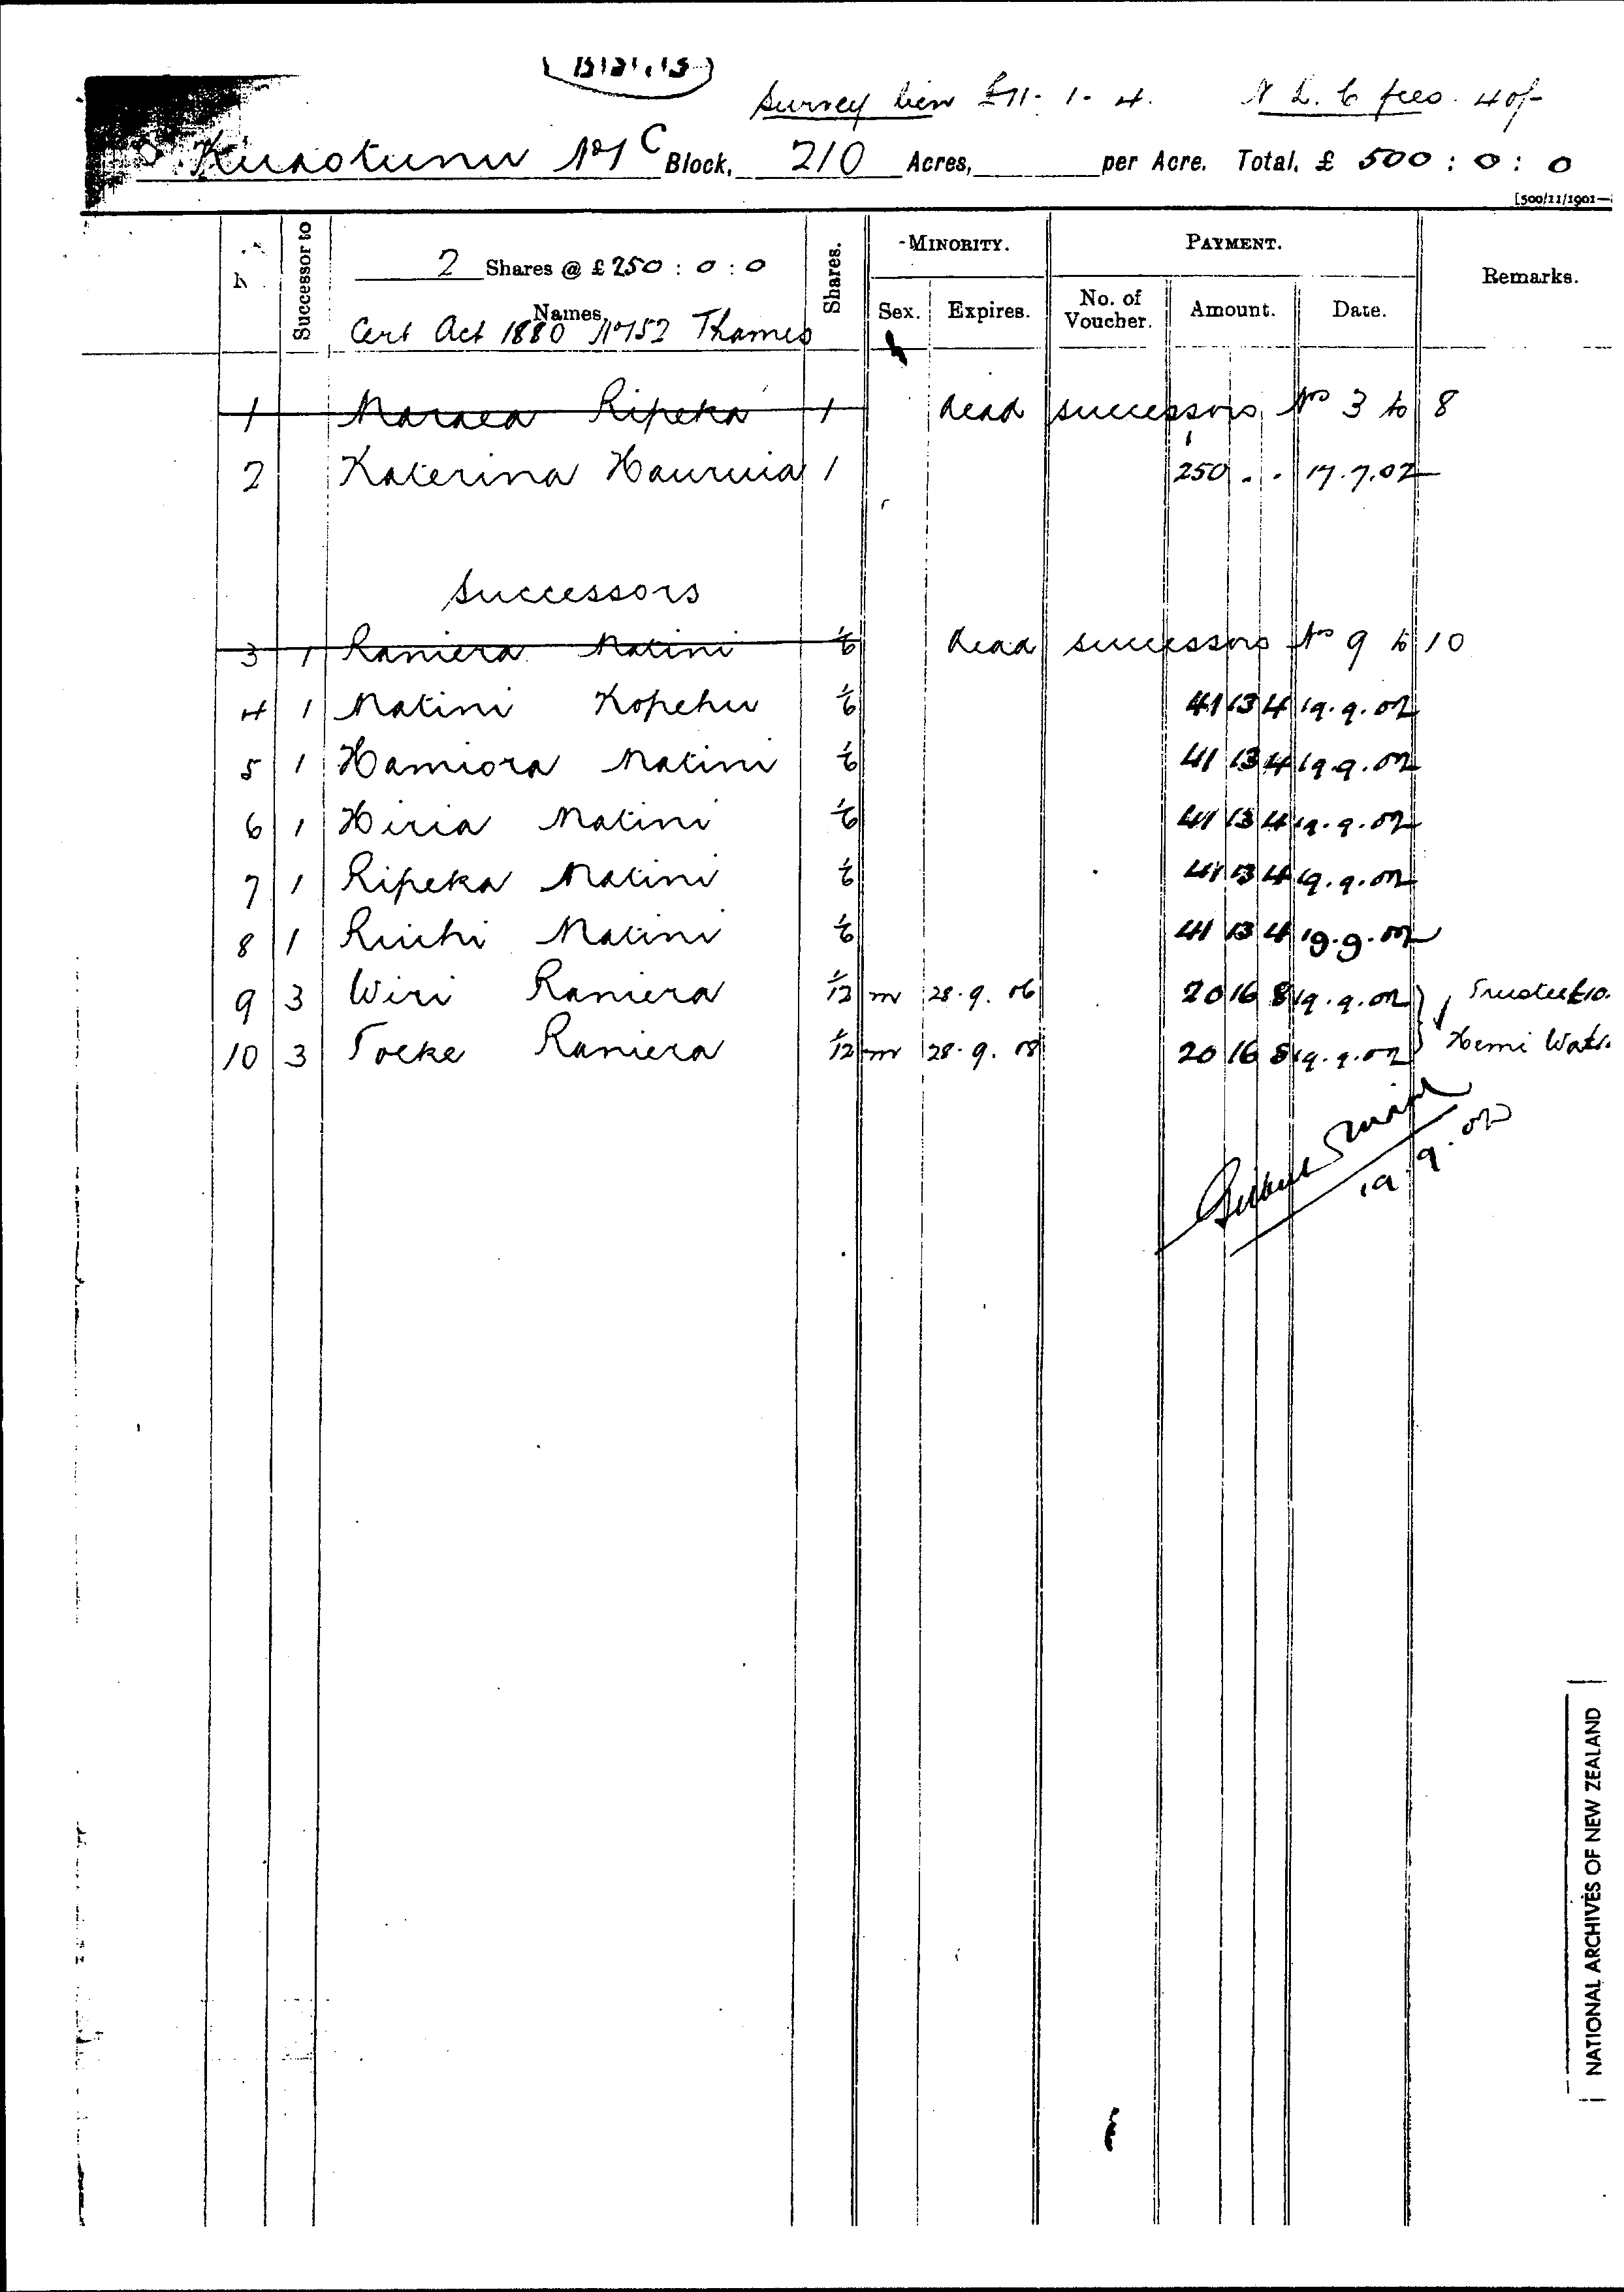 Survey lien £11 - 1 - 4. N L. C fees. 40/-
Kuaotunu No 1 C Block, 210 Acres, per Acre. Total, £ 500 : 0 : 0
[500/11/1901—
Successor to
2 Shares @ £ 250 : 0 : 0
Names
Cert Act 1880 No 152 Thames
Shares.
MINORITY.
Sex. Expires.
PAYMENT.
No. of Voucher. Amount. Date.
Remarks.
1 Maraea Ripeka 1 dead successors Nos 3 to 8
2 Katerina Hauruia 1 250 . . 17.7.02
Successors
3 1 Raniera Matini 1/6 dead successors Nos 9 to 10
4 1 Matini Kopehu 1/6 41 13 4 19.9.02
5 1 Hamiora Matini 1/6 41 13 4 19.9.02
6 1 Hiria Matini 1/6 41 13 4 19.9.02
7 1 Ripeka Matini 1/6 41 13 4 19.9.02
8 1 Matini 1/6 41 13 4 19.9.02
9 3 Wiri Raniera 1/12 m 28.9.06 20 16 8 19.9.02 Trustee
10 3 Toeke Raniera 1/12 m 28.9.08 20 16 8 19.9.02 Hemi
19.9.02
NATIONAL ARCHIVES OF NEW ZEALAND